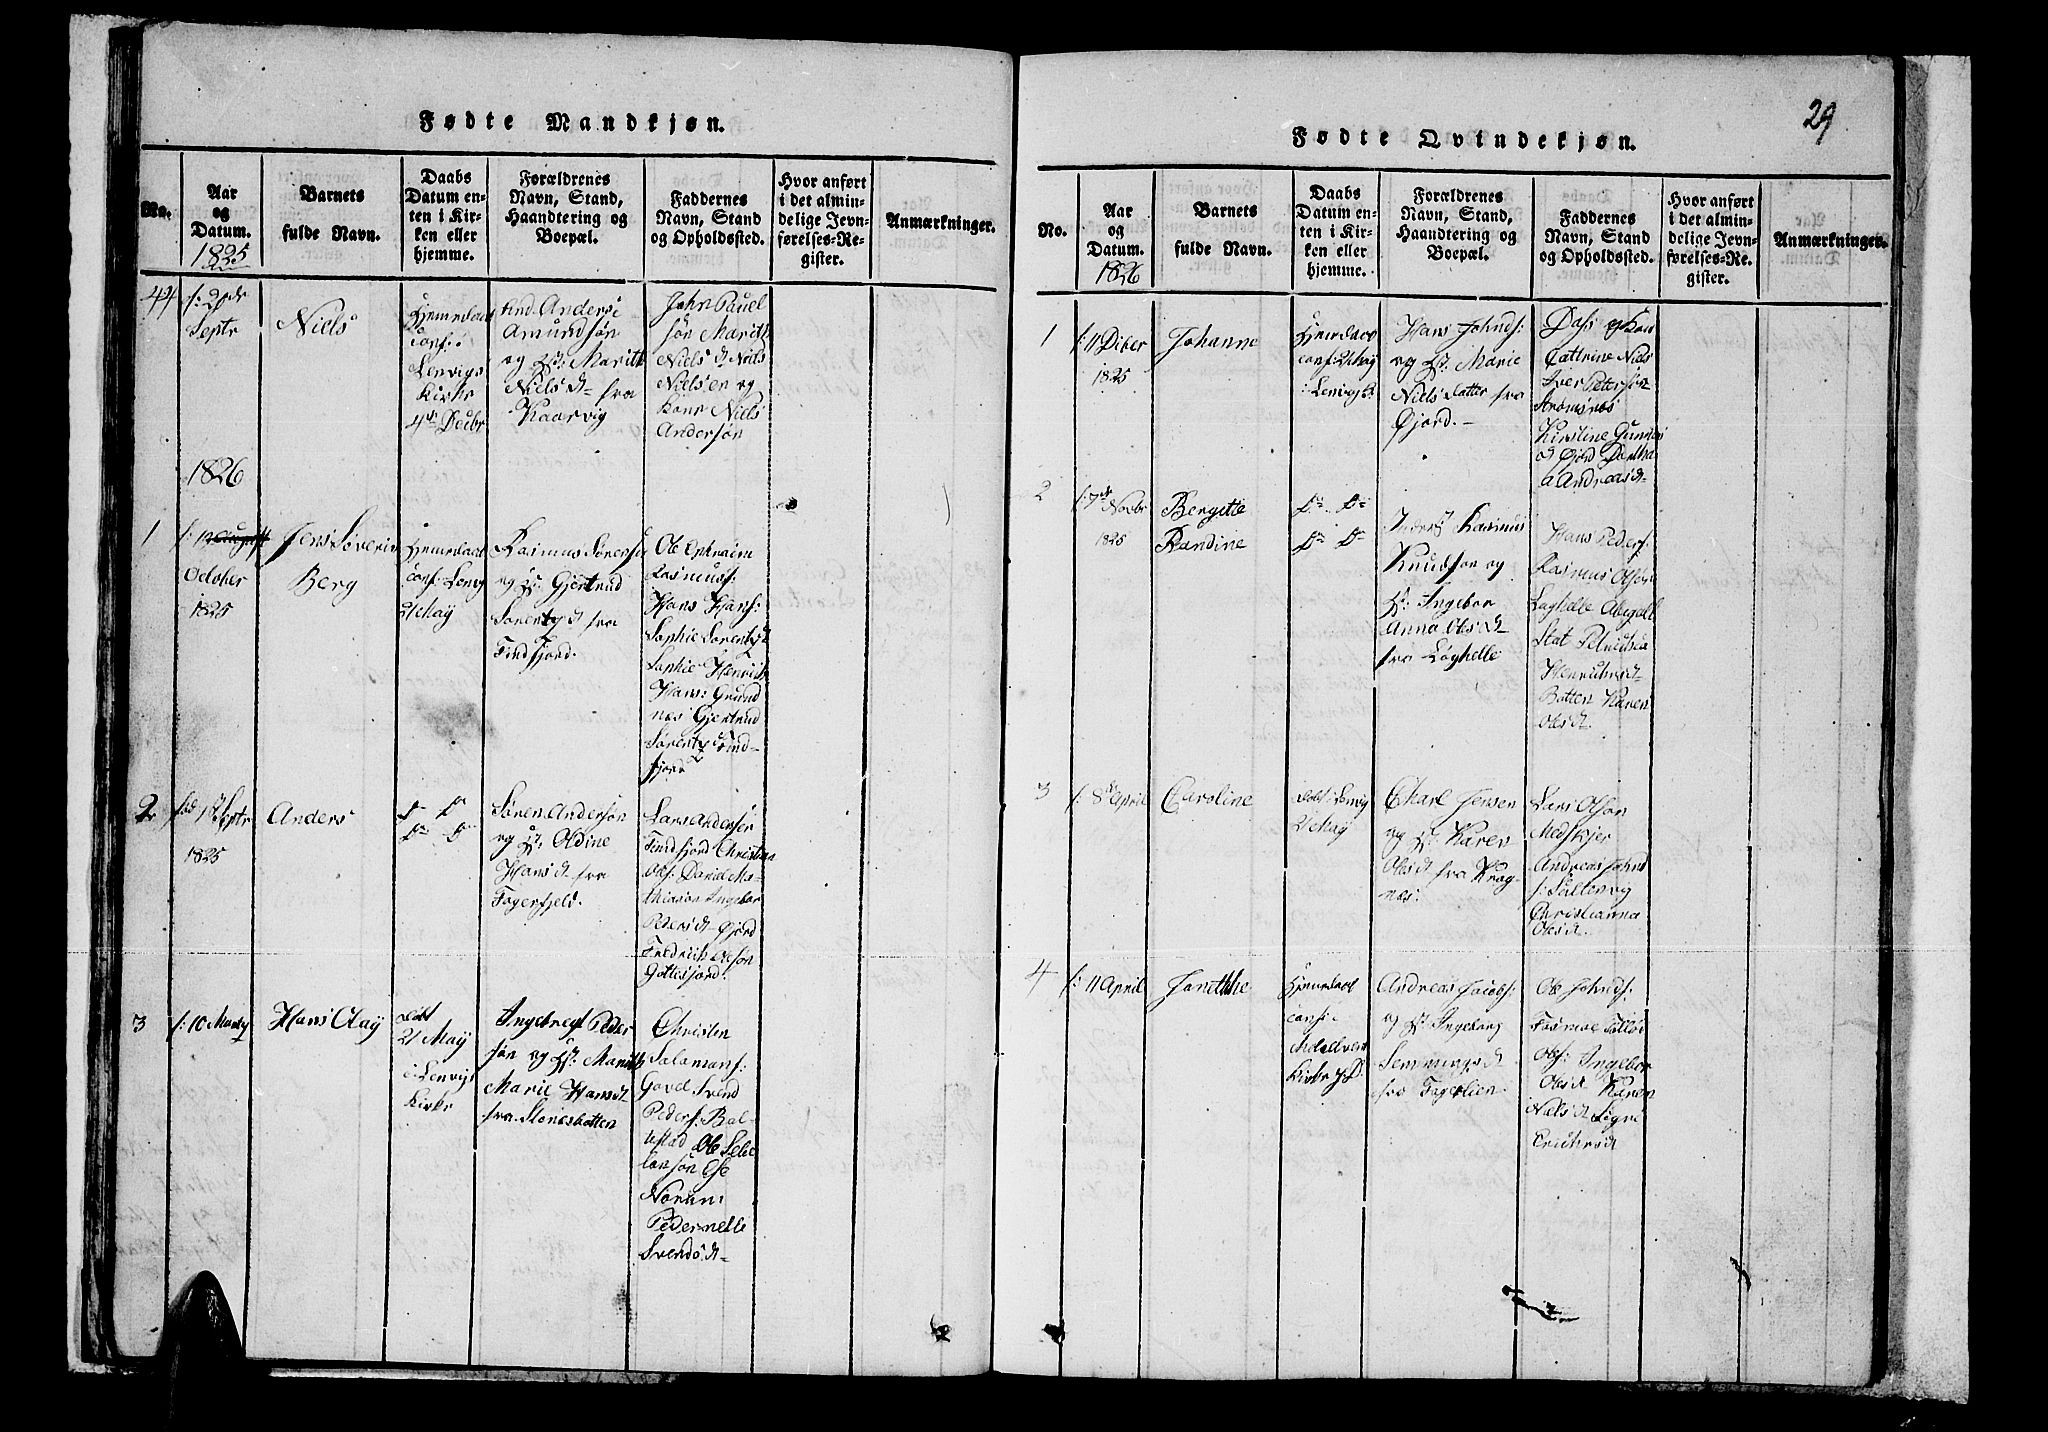 Fødte Mandkjøn.
No.
Aar
og
Datum.
1825
Barnets
fulde Navn.
Daabs
Datum en-
ten i Kir-
ken eller
hjemme.
Forældrenes
Navn, Stand,
Haandtering og
Boepæl.
Faddernes
Navn, Stand
og Opholdssted.
Hvor anført
i det almin-
delige Jevn-
førelses-Re-
gister.
Anmærkninger.
44
Septr
Niels
Hjemedøbt
conf: i
Lenvigs
Kirke
4de Decbr
Anders
Amundsøn
og H: Marith
Nielsd fra
Kaarvig
John Pauel
søn Marith
Nielsd Niels
Nielsen og
Kone Niels
Andersøn
1826
1
October
1825
Jens Søverin
Berg
Hjemedøbt
conf: Lenvig
21 May
Rasmus Sørens
og H: Gjertrud
Sorentzd fra
Findfjord.
Ole Ephraim
Rasmuss:
Hans Hans:
Sophie Sorentzd
Sophie Henrich
Hans: Grund
næs Gjertrud
Sørentzd Find-
fjord
2
1 Septr
1825
Anders
Do Do
Do Do
Søren Andersøn
og H: Oldine
Hansd fra
Fagerfjeld.
Lars Andersen
Findfjord Christian
Ols: David Ma-
thiasøn Ingebor
Pedersd Gjord
Fredrich Olsøn
Gottesjord.
3
f: 10 Marty
Hans Olay
døbt
21 May
i Lenvigs
Kirke
Ingebregt Peder
søn og H: Marith
Marie Hansd
fra Stønesbotten
Christen
Salamons:
Gavel Svend
Peders: Bal-
lestad Ole
Norum:
Pedernelle
Svendsd
29
Fødte Qvindekjøn.
No.
Aar
og
Datum.
1826
Barnets
fulde Navn.
Daabs
Datum en-
ten i Kir-
ken eller
hjemme.
Forældrenes
Navn, Stand,
Haandtering og
Boepæl.
Faddernes
Navn, Stand
og Opholdssted.
Hvor anført
i det almin-
delige Jevn-
førelses-Re-
gister.
Anmærkninger.
1
f: 11 Dcber
1825
Johanne
Hjemdøbt
conf: 21 May
i Lenvigs K.
Hans Johnds:
og H: Marie
Niels datter fra
Gjord.
Dass og Kone
Cattrine Niels
Iver Pettersøn
Strømsnæs
Kirstine
d Gjord Dorthe
a Andreasd
2
f: 7de Novbr
1825
Bergitte
Randine
Do Do
Do Do
Rasmus
Knudsøn og
H: Ingebor
Anna Olsd
fra Løghelle
Hans Peders:
Rasmus Olsøn
Laghelle Abigael
Henrichsd
Botten Karen
Olsd
3
f: 8de April
Caroline
døbt i Lenvig
21 May
Charl Jensen
og H: Karen
Olsd fra Krog-
næs:
Lars Olsøn
Medskjer
Andreas Johnd
s: Salten og
Christianna
Olsd
4
f: 11 April
Janithe
Hjemdøbt
conf:
Maalvens
Kirke
Andreas Jacobs:
og H: Ingeborg
Semmingsd
fra Fagerlien
Ole Johnds:
Fosmoe
Ols: Ingebor
Olsd Karen
Nielsd Signe
Erichsd